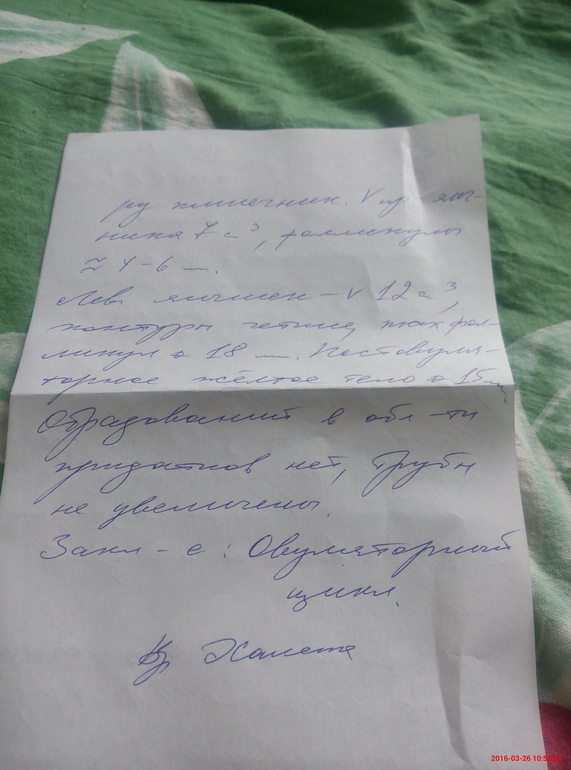 ру яичник. V пр. яич-
ника 7 см³, фолликулы
≈ 4-6 мм.
Лев. яичник - V 12 см³,
контуры четкие, max фол-
ликул d 18 мм. Постовуля-
торное жёлтое тело d 15 мм
Образований в обл-ти
придатков нет, трубы
не увеличены.
Закл-е: Овуляторный
цикл.
Вр
2016-03-26